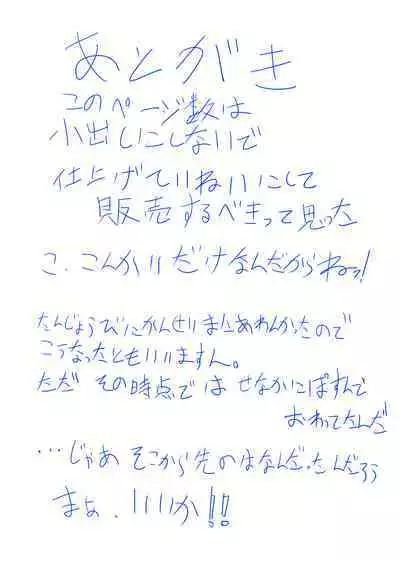 あとがき
このページ数は
小出しにしないで
仕上げていねいにして
販売するべきって思った
こ、こんかいだけなんだからねっ!
たんじょうびにかんせいまにあわんかったので
こうなったともいいますん。
ただ その時点では せなかにぱすんで
おわってたんだ
…じゃあ そこから先のはなんだったんだろう
まぁ、いいか!!